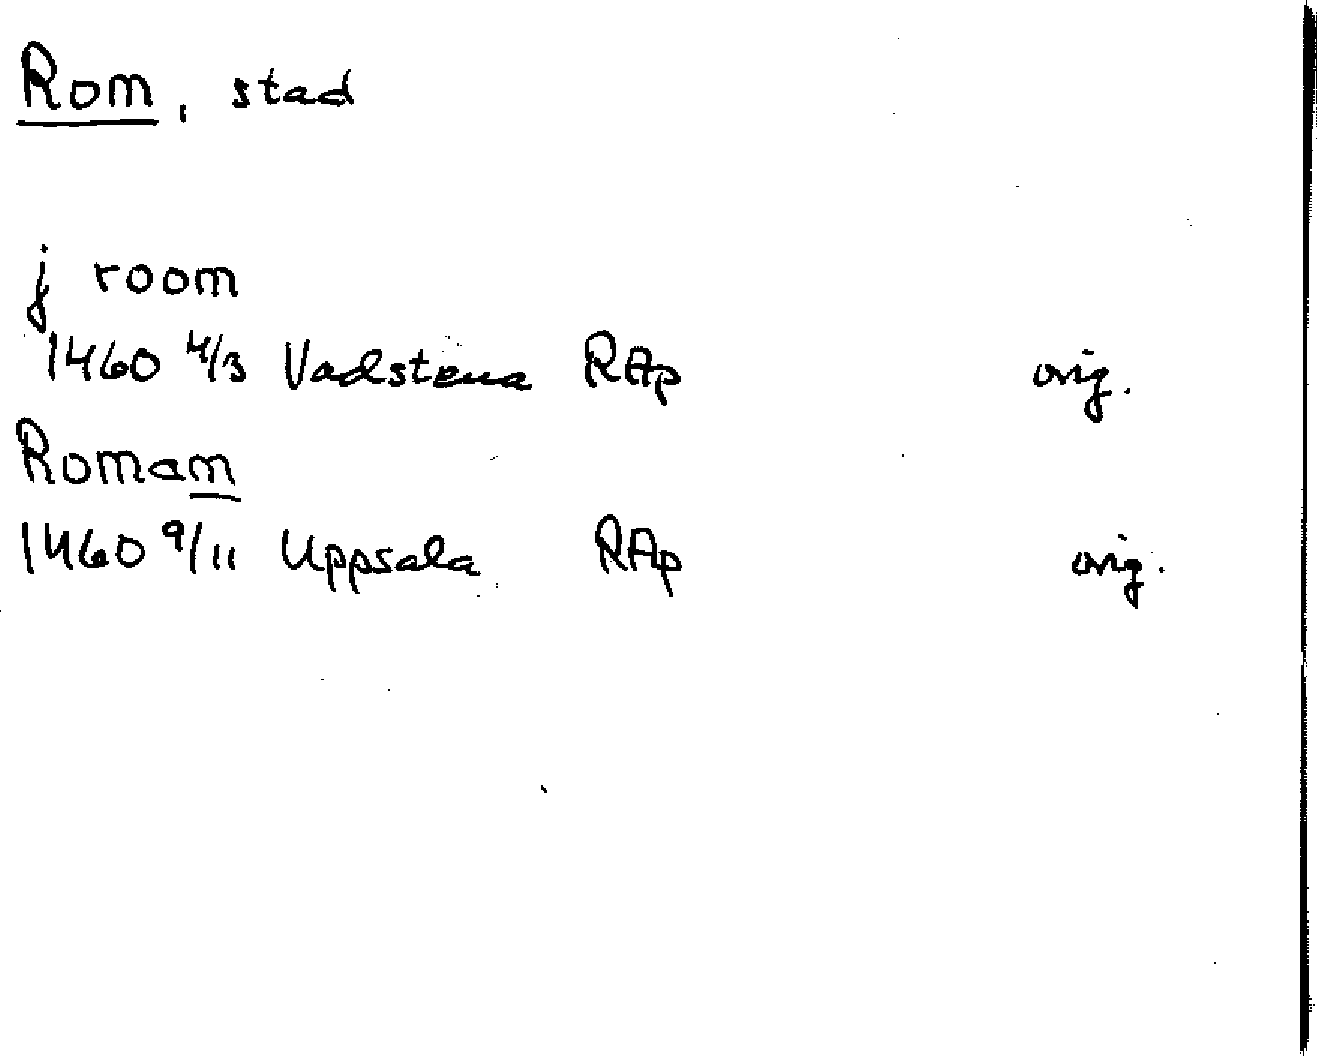 Rom, stad
j room
1460 4/3 Vadstena RAp orig.
Romam
1460 9/11 Uppsala RAp orig.